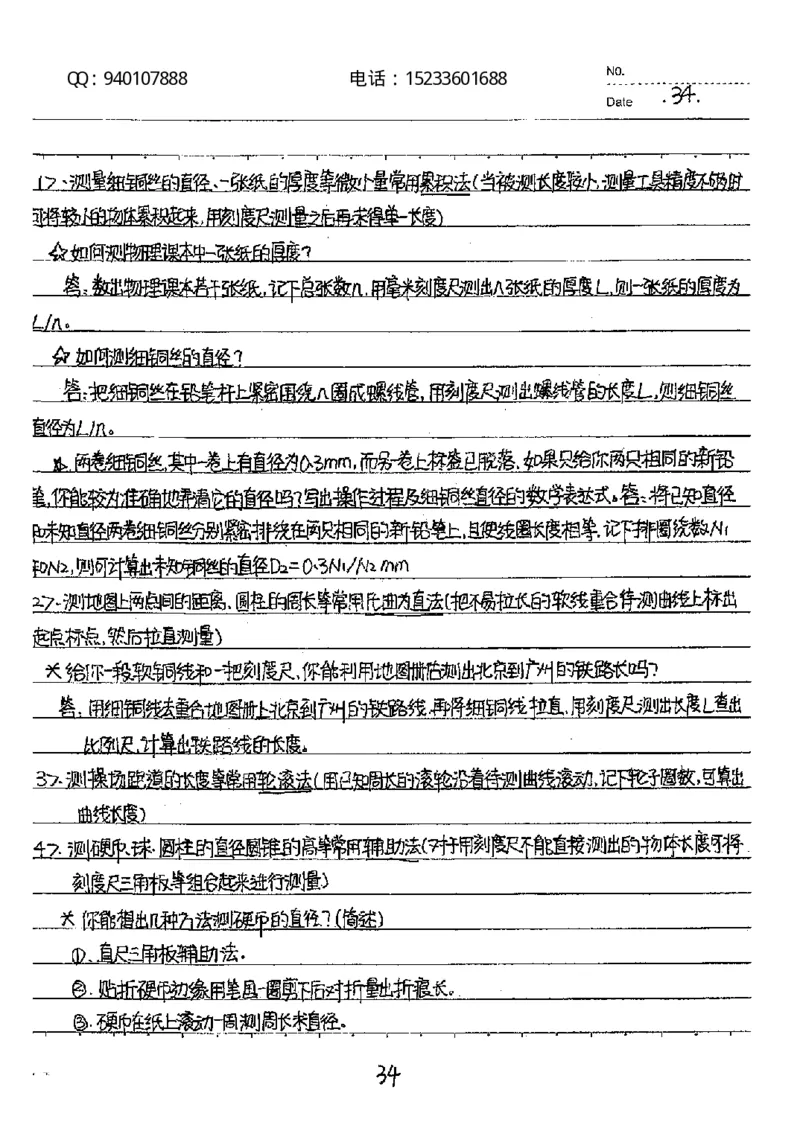 QQ：940107888 电话：15233601688 No.
Date .34.
1>、测量细铜丝的直径、一张纸的厚度等微小量常用累积法(当被测长度较小,测量工具精度不够时
可将较小的物体累积起来,用刻度尺测量之后再求得单一长度)
☆如何测物理课本中一张纸的厚度?
答:数出物理课本若干张纸,记下总张数n,用毫米刻度尺测出n张纸的厚度L,则一张纸的厚度为
L/n。
☆如何测细铜丝的直径?
答:把细铜丝在铅笔杆上紧密围绕n圈成螺线管,用刻度尺测出螺线管的长度L,则细铜丝
直径为L/n。
两卷细铜丝,其中一卷上有直径为0.3mm,而另一卷上标签已脱落,如果只给你两只相同的新铅
笔,你能较为准确地弄清它的直径吗?写出操作过程及细铜丝直径的数学表达式。答:将已知直径
和未知直径两卷细铜丝分别紧密排绕在两只相同的新铅笔上,且使线圈长度相等,记下排圈绕数N1
和N2,则可计算出未知铜丝的直径D2=0.3N1/N2 mm
2>.测地图上两点间的距离,圆柱的周长等常用化曲为直法(把不易拉长的软线重合待测曲线上标出
起点标点,然后拉直测量)
※给你一段软铜线和一把刻度尺,你能利用地图册估测出北京到广州的铁路长吗?
答:用细铜线去重合地图册上北京到广州的铁路线,再将细铜线拉直,用刻度尺测出长度L查出
比例尺,计算出铁路线的长度。
3>.测操场跑道的长度等常用轮滚法(用已知周长的滚轮沿着待测曲线滚动,记下轮子圈数,可算出
曲线长度)
4>.测硬币、球、圆柱的直径圆锥的高等常用辅助法(对于用刻度尺不能直接测出的物体长度可将
刻度尺三角板等组合起来进行测量)
※你能想出几种方法测硬币的直径?(简述)
①、直尺三角板辅助法.
②.贴折硬币边缘用笔画一圈剪下后对折量出折痕长。
③.硬币在纸上滚动一周测周长求直径。
34